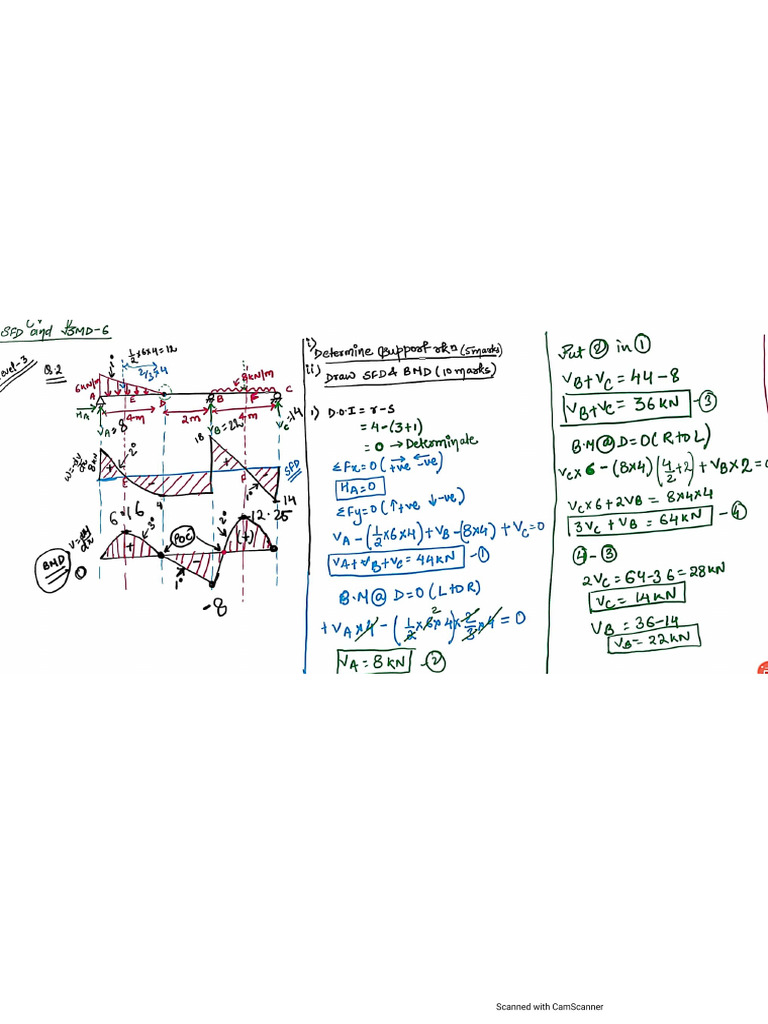 SFD and BMD-6
Level-3
Q.2
½×6×4=12
2/3×4
6KN/m
8KN/m
A
E
D
B
F
C
HA
4m
2m
4m
VA=8
VB=22
VC=14
18
8KN
2°
SFD
E
F
1°
4
14
6.16
3°
POC
2°
12.25
(+)
BMD
1°
-8
i) Determine support rkn (5marks)
ii) Draw SFD & BMD (10 marks)
i) D.O.I = r-s
= 4-(3+1)
= 0 → Determinate
ΣFx=0 (→+ve ←-ve)
HA=0
ΣFy=0 (↑+ve ↓-ve)
VA-(½×6×4)+VB-(8×4)+VC=0
VA+VB+VC=44KN -①
B.M@ D=0 (L to R)
+VA×4-(½×6×4)×2/3×4=0
VA=8KN -②
Put ② in ①
VB+VC=44-8
VB+VC=36KN -③
B.M@D=0(R to L)
VC×6-(8×4)(4/2+2)+VB×2=0
VC×6+2VB=8×4×4
3VC+VB=64KN -④
④-③
2VC=64-36=28KN
VC=14KN
VB=36-14
VB=22KN
Scanned with CamScanner